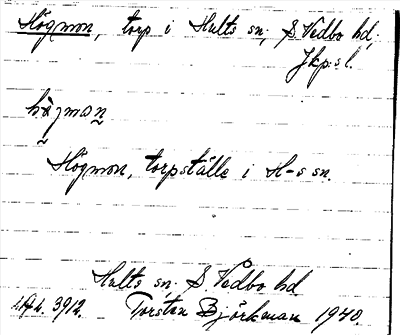 Högmon, torp i Hults sn; S. Vedbo hd;
Jkp:s l.
hö̀gmon
Högmon, torpställe i H-s sn.
Hults sn. S. Vedbo hd
3912. Torsten Björkman 1940.